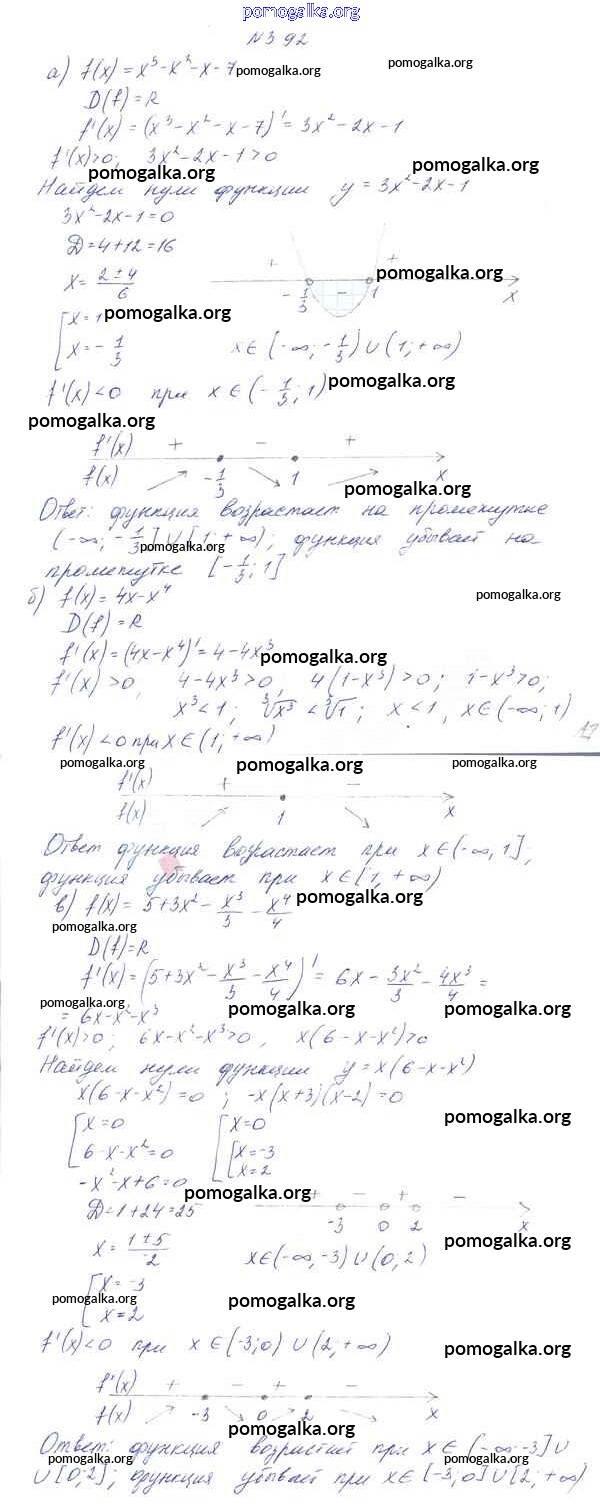 pomogalka.org
№392
а) f(x) = x³-x²-x-7 pomogalka.org pomogalka.org
D(f) = R
f'(x) = (x³-x²-x-7)' = 3x²-2x-1
f'(x)>0; 3x²-2x-1>0
pomogalka.org pomogalka.org
Найдем нули функции y = 3x²-2x-1
3x²-2x-1=0
D=4+12=16
x = (2±4)/6 + - + pomogalka.org
-1/3 1 x
[x=1 pomogalka.org
[x=-1/3 x∈(-∞;-1/3)∪(1;+∞)
f'(x)<0 при x∈(-1/3;1) pomogalka.org
pomogalka.org
f'(x) + - +
f(x) -1/3 1 x
pomogalka.org
Ответ: функция возрастает на промежутке
(-∞;-1/3]∪[1;+∞); функция убывает на
промежутке [-1/3;1]
б) f(x) = 4x-x⁴ pomogalka.org
D(f) = R
f'(x) = (4x-x⁴)' = 4-4x³ pomogalka.org
f'(x)>0, 4-4x³>0, 4(1-x³)>0; 1-x³>0;
x³<1; ∛x³<∛1; x<1, x∈(-∞;1)
f'(x)<0 при x∈(1;+∞)
pomogalka.org pomogalka.org pomogalka.org
f'(x) + -
f(x) 1 x
Ответ функция возрастает при x∈(-∞,1];
функция убывает при x∈[1,+∞)
в) f(x) = 5+3x²-x³/3-x⁴/4 pomogalka.org
pomogalka.org
D(f)=R
f'(x) = (5+3x²-x³/3-x⁴/4)' = 6x-3x²/3-4x³/4 =
pomogalka.org pomogalka.org pomogalka.org
= 6x-x²-x³
f'(x)>0; 6x-x²-x³>0, x(6-x-x²)>0
Найдем нули функции y=x(6-x-x²)
x(6-x-x²)=0; -x(x+3)(x-2)=0
[x=0 [x=0 pomogalka.org
[6-x-x²=0 [x=-3
[x=2
-x²-x+6=0
pomogalka.org
D=1+24=25 + - + -
-3 0 2 x
x = (1±5)/-2 x∈(-∞,-3)∪(0,2) pomogalka.org
[x=-3
pomogalka.org pomogalka.org
[x=2
f'(x)<0 при x∈(-3;0)∪(2;+∞) pomogalka.org
f'(x) + - + -
f(x) -3 0 2 x
pomogalka.org
Ответ: функция возрастает при x∈(-∞;-3]∪
pomogalka.org pomogalka.org
∪[0;2]; функция убывает при x∈[-3;0]∪[2;+∞)